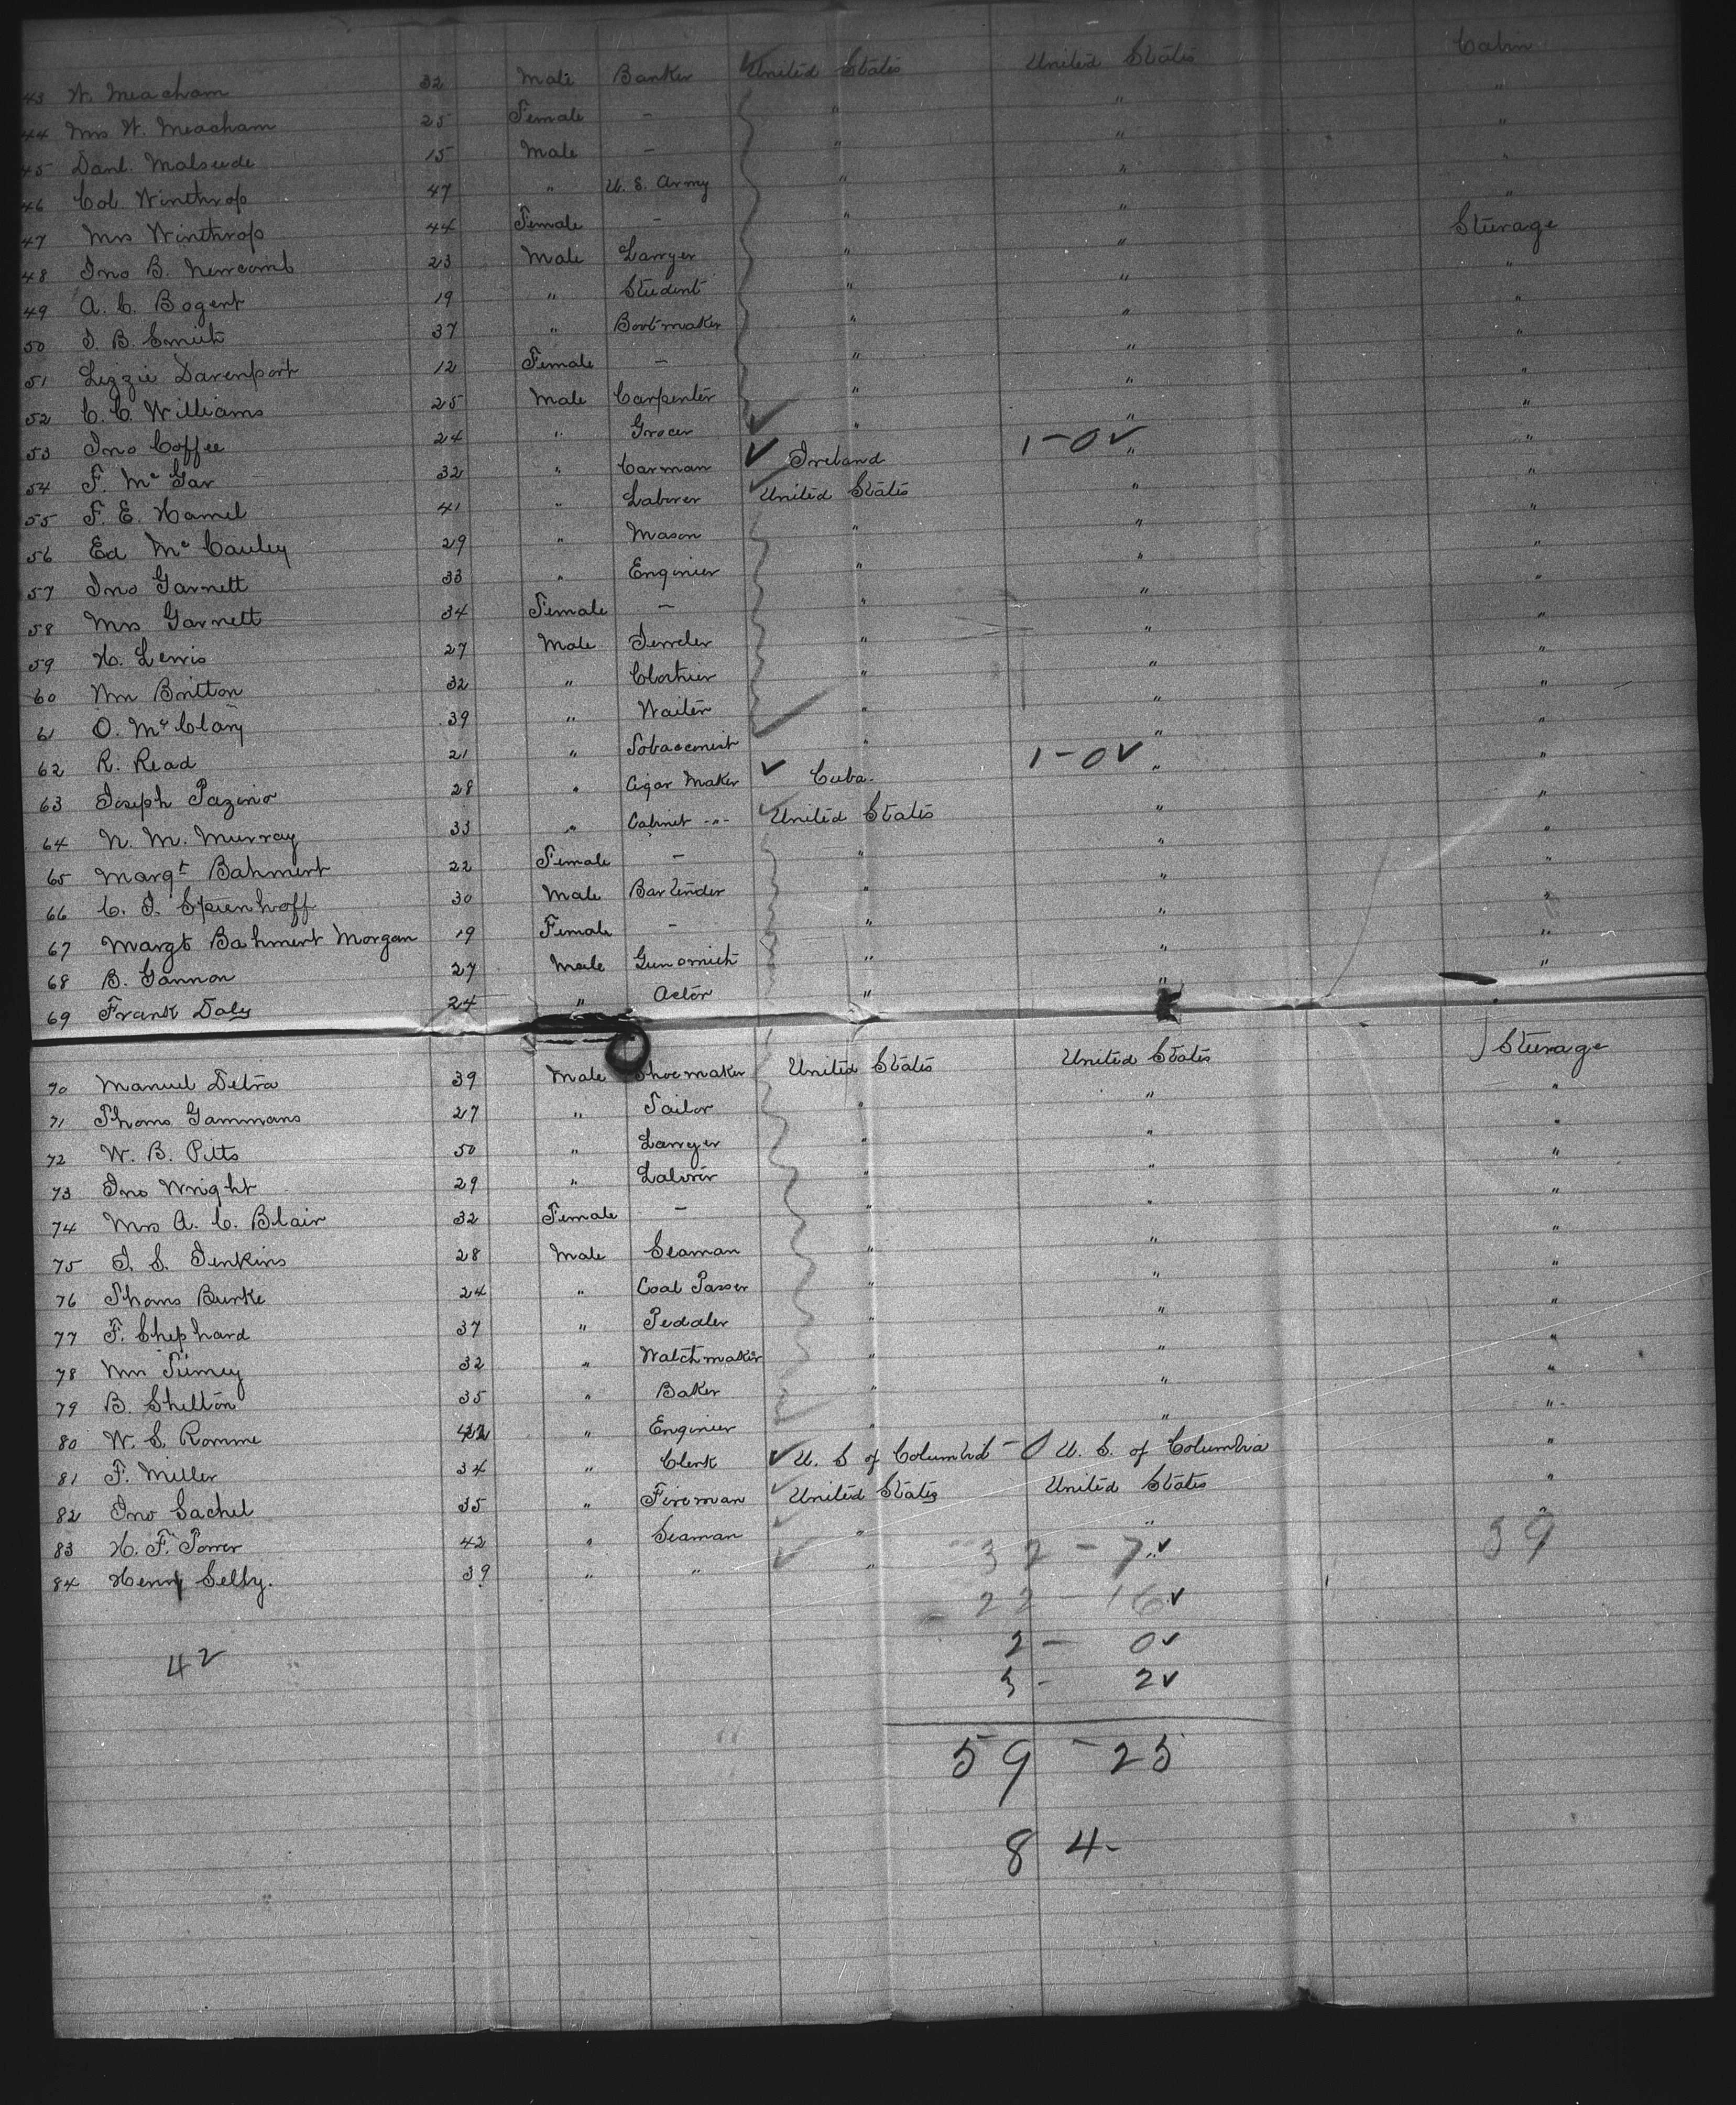 43 W. Meacham 32 Male Banker United States United States Cabin
44 Mrs W. Meacham 25 Female - " " "
45 Danl. Malseede 15 Male - " " "
46 Col. Winthrop 47 " U. S. Army " " "
47 Mrs Winthrop 44 Female - " " "
48 Jno B. Newcomb 23 Male Lawyer " " Steerage
49 A. C. Bogert 19 " Student " " "
50 J. B. Smith 37 " Bootmaker " " "
51 Lizzie Davenport 12 Female - " " "
52 C. C. Williams 25 Male Carpenter " " "
53 Jno Coffee 24 " Grocer " " "
54 F. McGar 32 " Carman Ireland 1-0 " "
55 F. E. Hamel 41 " Laborer United States " "
56 Ed McCauley 29 " Mason " " "
57 Jno Garnett 33 " Engineer " " "
58 Mrs Garnett 34 Female - " " "
59 H. Lewis 27 Male Jeweler " " "
60 Wm Britton 32 " Clothier " " "
61 O. McClary 39 " Waiter " " "
62 R. Read 21 " Tobacconist " " "
63 Joseph Pazino 28 " Cigar Maker Cuba 1-0 " "
64 N. M. Murray 33 " Cabinet -"- United States " "
65 Margt Bahmert 22 Female - " " "
66 C. J. 30 Male Bartender " " "
67 Margt Bahmert Morgan 19 Female - " " "
68 B. Gannon 27 Male Gunsmith " " "
69 Frank Daly 24 " Actor " " "
70 Manuel Detra 39 Male Shoemaker United States United States Steerage
71 Thoms Gammans 27 " Tailor " " "
72 W. B. Pitts 50 " Lawyer " " "
73 Jno Wright 29 " Laborer " " "
74 Mrs A. C. Blair 32 Female - " " "
75 J. S. Jenkins 28 Male Seaman " " "
76 Thoms Burke 24 " Coal Passer " " "
77 F. Shephard 37 " Peddler " " "
78 Wm 32 " Watchmaker " " "
79 B. Shelton 35 " Baker " " "
80 W. S. Romme " Engineer " " "
81 F. Miller 34 " Clerk U. S of Columbia - 0 U. S. of Columbia "
82 Jno Sachel 35 " Fireman United States United States "
83 H. F. Power 42 " Seaman " " "
84 Henry Selby. 39 " " " "
39
32 - 7
22 - 16
2 - 0
42
3 - 2
59 - 25
84